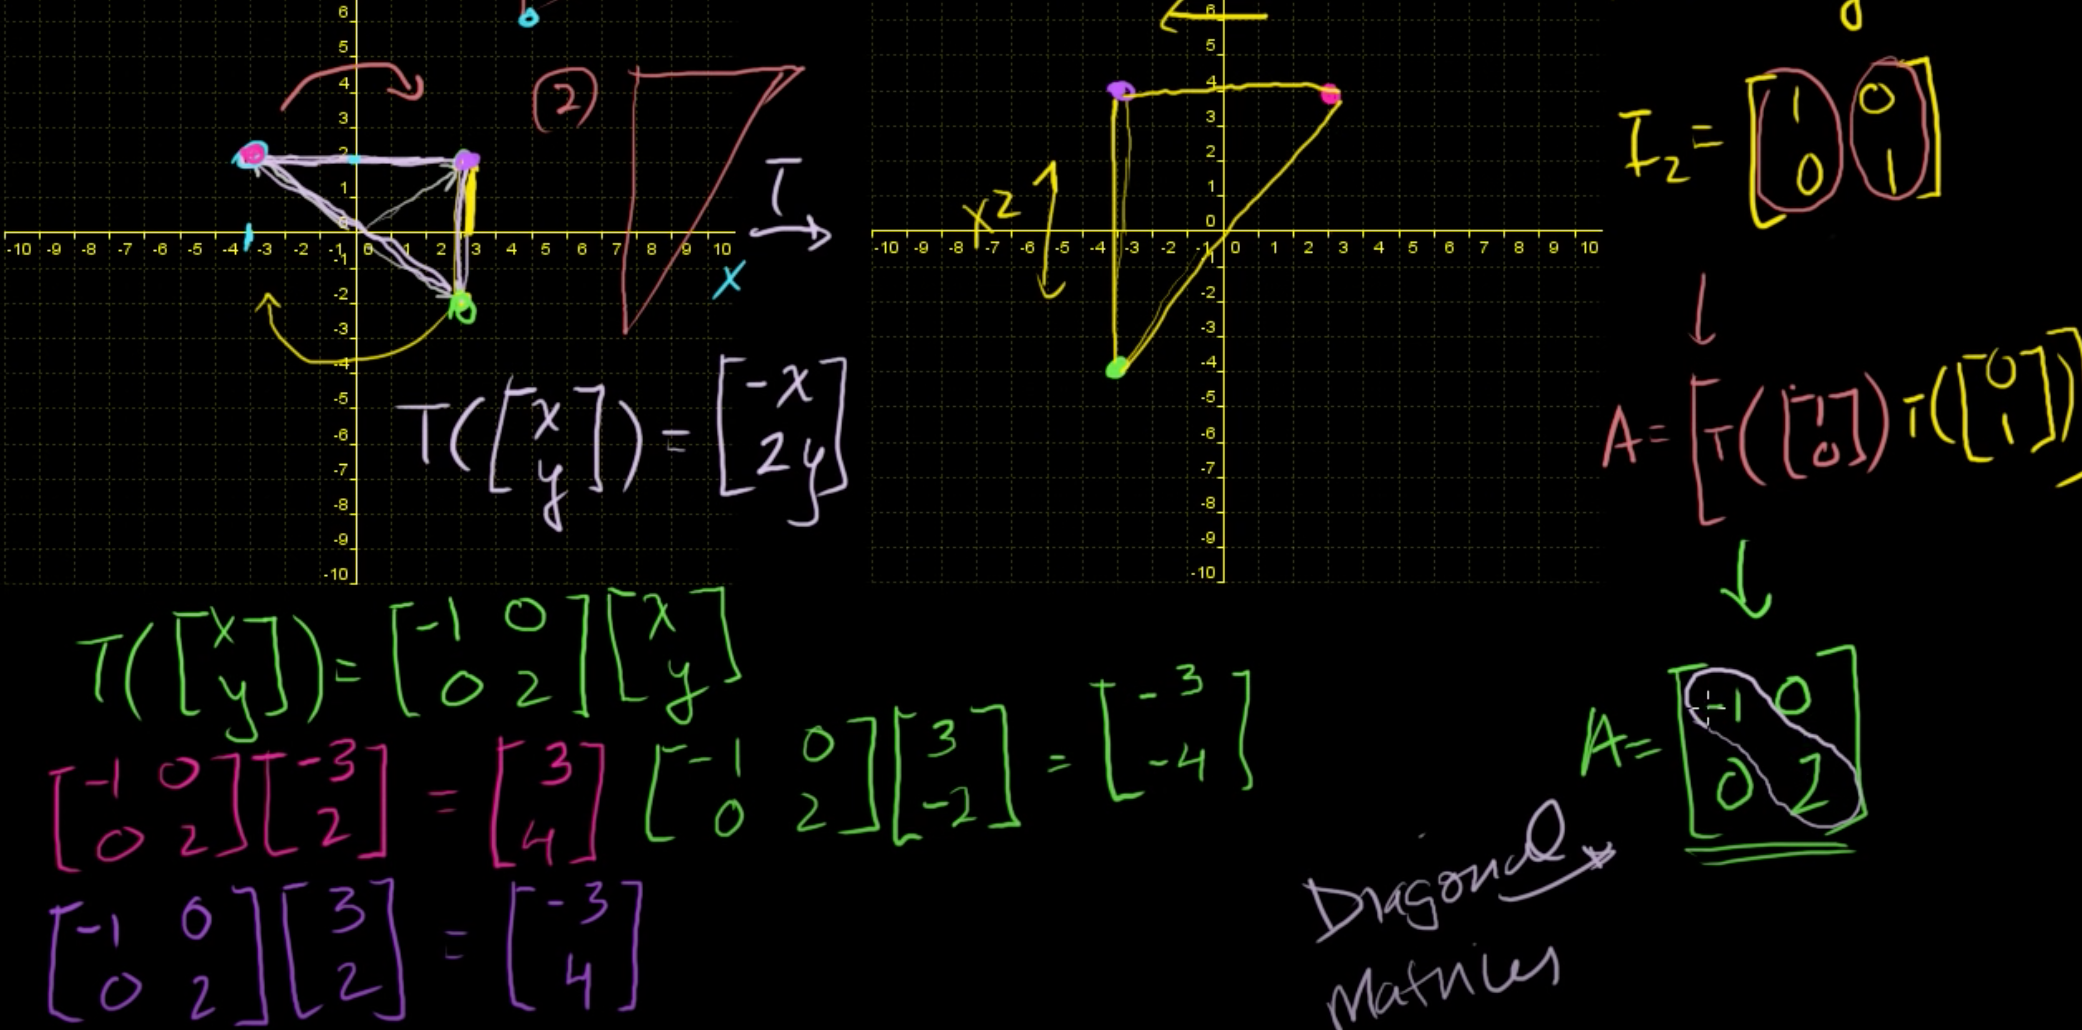 6 5 4 3 2 1 0 -1 -2 -3 -4 -5 -6 -7 -8 -9 -10
-10 -9 -8 -7 -6 -5 -4 -3 -2 -1 0 1 2 3 4 5 6 7 8 9 10
(2)
T
x
6 5 4 3 2 1 0 -1 -2 -3 -4 -5 -6 -7 -8 -9 -10
-10 -9 -8 -7 -6 -5 -4 -3 -2 -1 0 1 2 3 4 5 6 7 8 9 10
x2
I₂ = [1 0
0 1]
T([x
y]) = [-x
2y]
A = [T([1
0]) T([0
1])]
T([x
y]) = [-1 0
0 2] [x
y]
[-1 0
0 2] [-3
2] = [3
4]
[-1 0
0 2] [3
-2] = [-3
-4]
[-1 0
0 2] [3
2] = [-3
4]
A = [-1 0
0 2]
Diagonal
Matrices